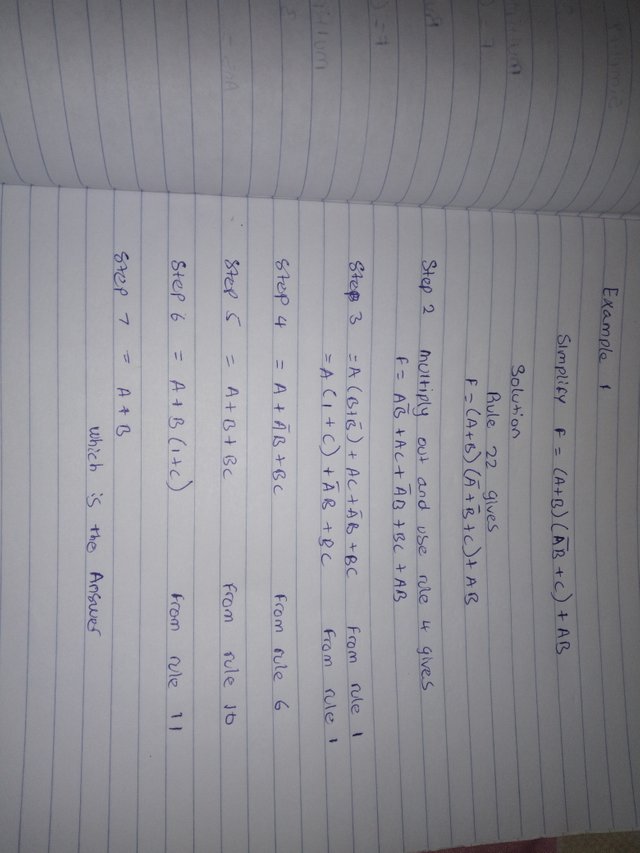 Example 1
Simplify F = (A+B)(A̅B̅ + C) + AB
Solution
Rule 22 gives
F = (A+B)(A̅ + B̅ + C) + AB
Step 2 multiply out and use rule 4 gives
F = AB̅ + AC + A̅B + BC + AB
Step 3 = A(B+B̅) + AC + A̅B + BC From rule 1
= A(1+C) + A̅B + BC From rule 1
Step 4 = A + A̅B + BC From rule 6
Step 5 = A+B+BC From rule 10
Step 6 = A+B(1+C) From rule 11
Step 7 = A+B
which is the Answer